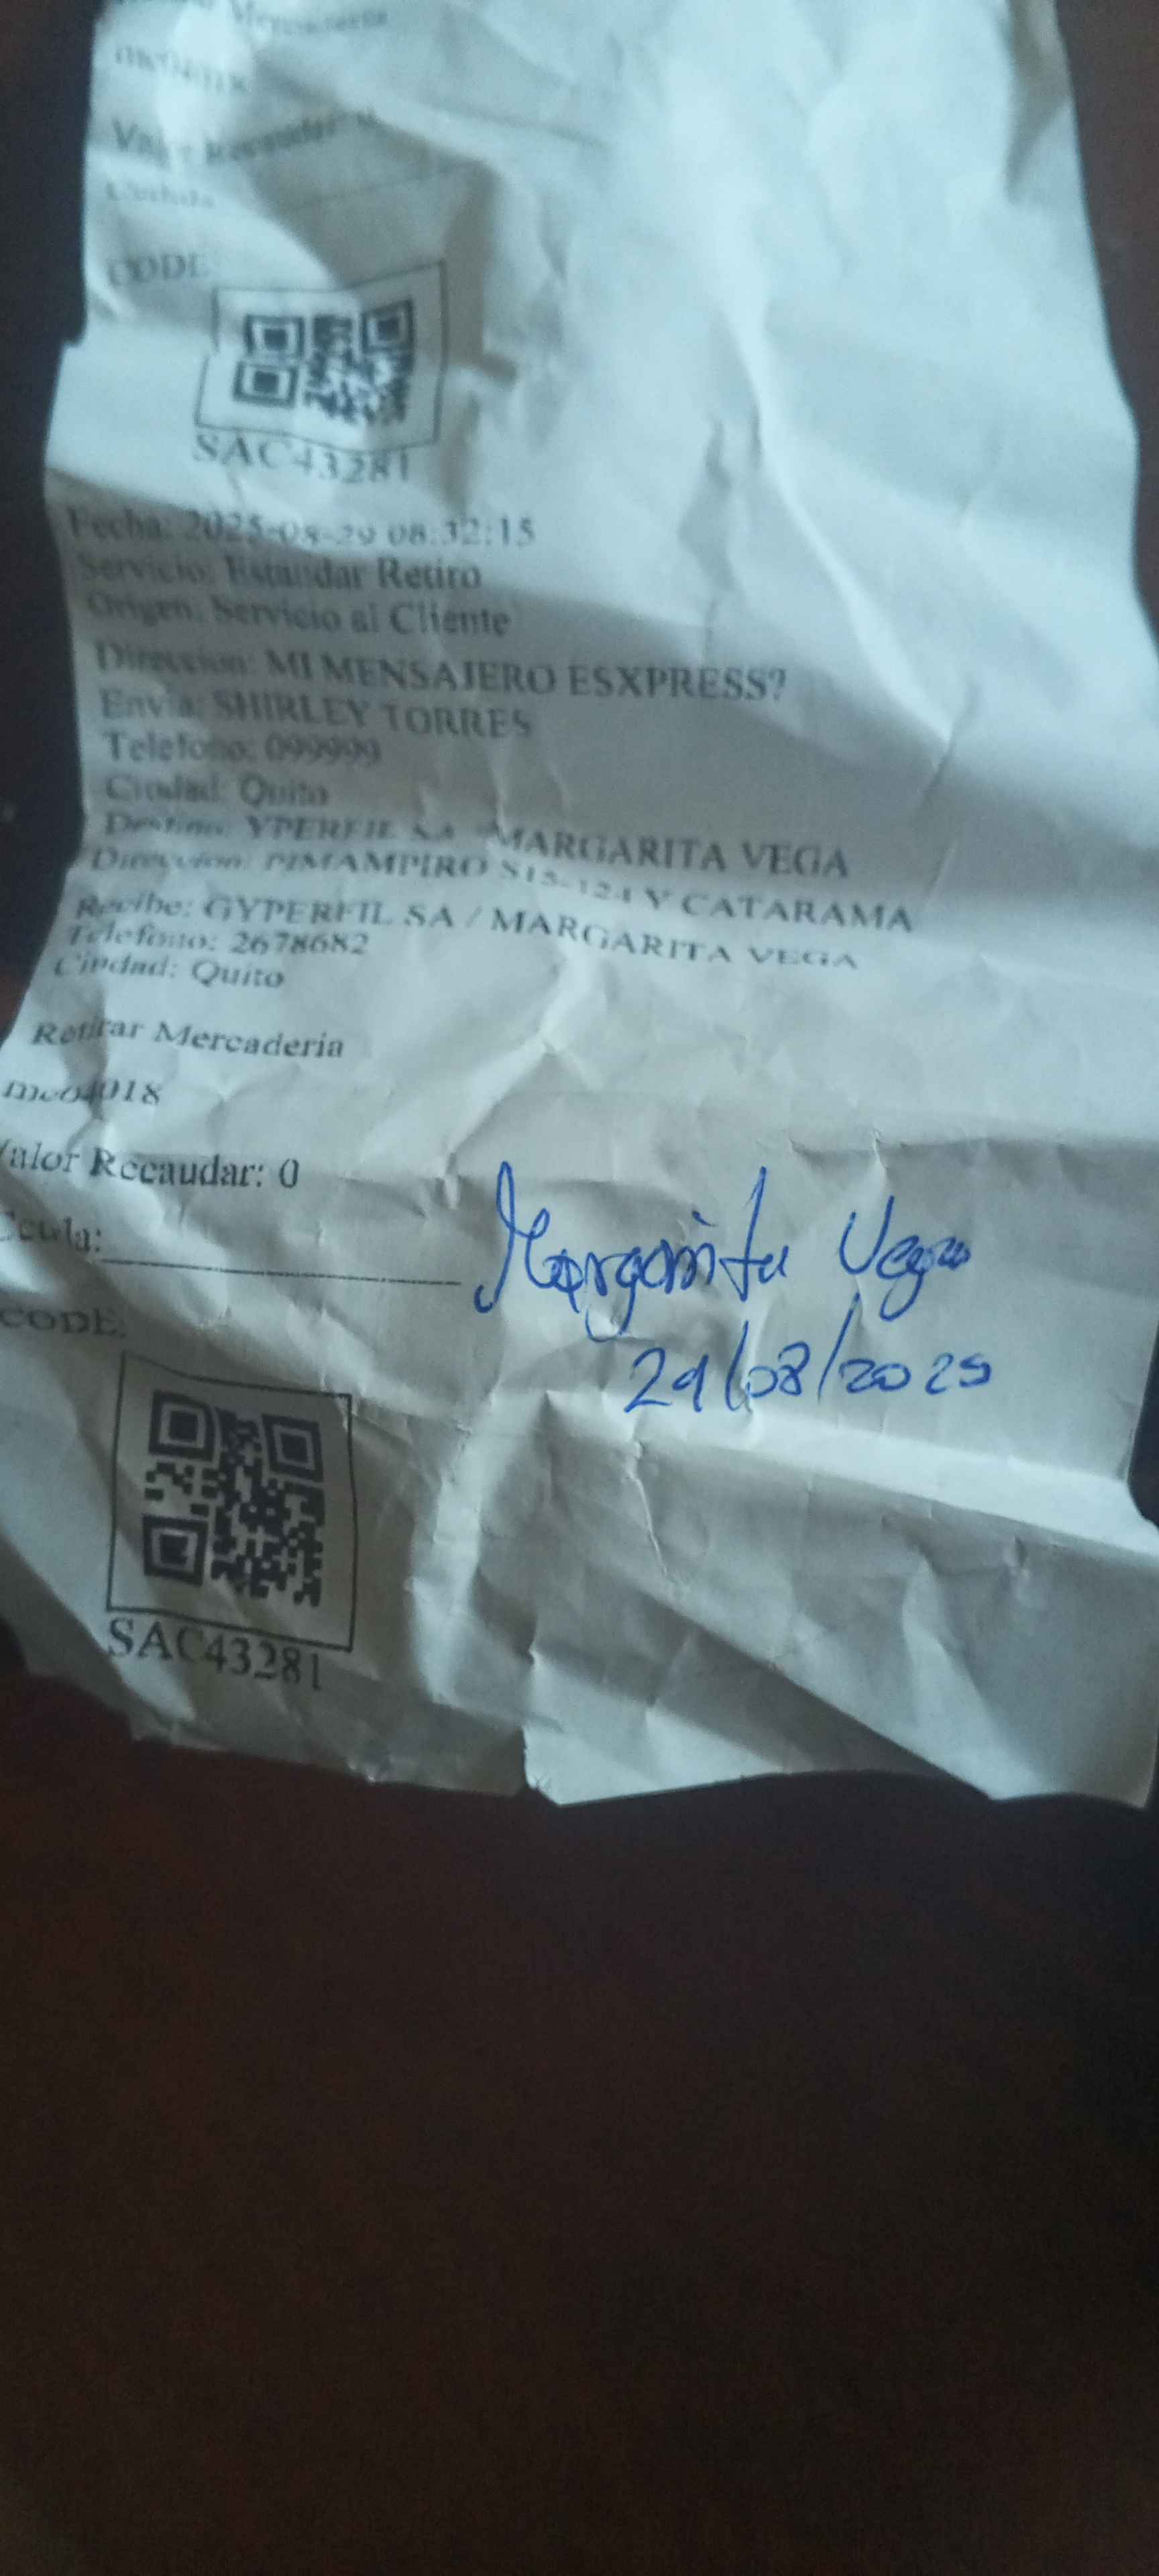 Mercaderia
Valor Recaudar:
Cedula
CODE
SAC43281
Fecha: 2025-08-29 08:32:15
Servicio: Estandar Retiro
Origen: Servicio al Cliente
Direccion: MI MENSAJERO ESXPRESS?
Envia: SHIRLEY TORRES
Telefono: 099999
Ciudad: Quito
Destino: YPERFIL SA MARGARITA VEGA
Direccion: PIMAMPIRO S15-124 Y CATARAMA
Recibe: GYPERFIL SA / MARGARITA VEGA
Telefono: 2678682
Ciudad: Quito
Retirar Mercaderia
Valor Recaudar: 0
Cedula:
Margarita Vega
29/08/2025
CODE:
SAC43281